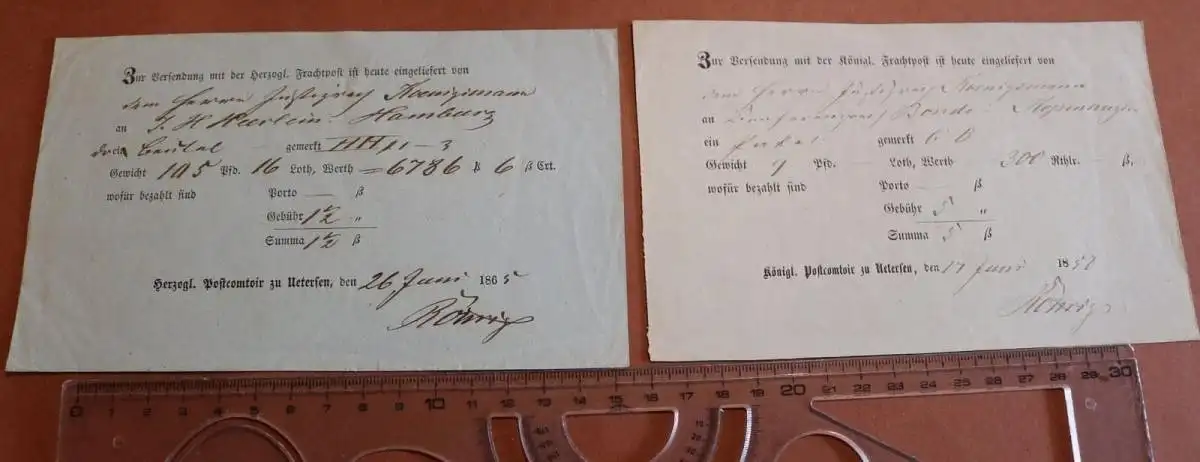 Zur Versendung mit der Herzogl. Frachtpost ist heute eingeliefert von
dem Herrn Justizrath Koenigsmann
an J. H. Hamburg
drei Beutel gemerkt 1–3
Gewicht 105 Pfd. 16 Loth, Werth = 6786 ß 6 ß Crt.
wofür bezahlt sind Porto — ß
Gebühr 1½ „
Summa 1½ ß
Herzogl. Postcomtoir zu Uetersen, den 26 Juni 1865
Zur Versendung mit der Königl. Frachtpost ist heute eingeliefert von
dem Herrn Justizrath Koenigsmann
an Conferenzrath
ein gemerkt B
Gewicht 9 Pfd. — Loth, Werth 300 Rthlr. — ß,
wofür bezahlt sind Porto — ß
Gebühr 5 „
Summa 5 ß
Königl. Postcomtoir zu Uetersen, den 17 Juni 185
0 1 2 3 4 5 6 7 8 9 10 11 12 13 14 15 16 17 18 19 20 21 22 23 24 25 26 27 28 29 30